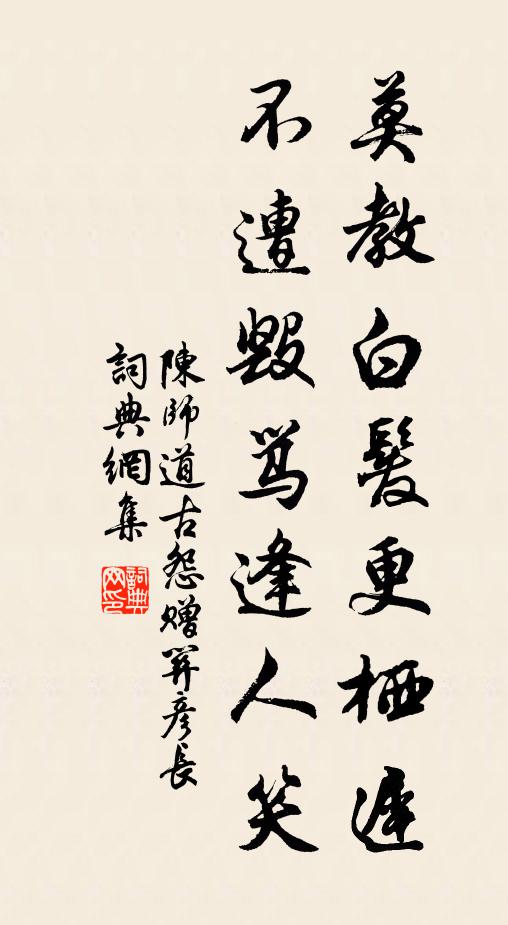 莫教白髮更栖遲
不遭毀駡逢人笑
陳師道古怨贈彥長
詞典網集
詞典网印